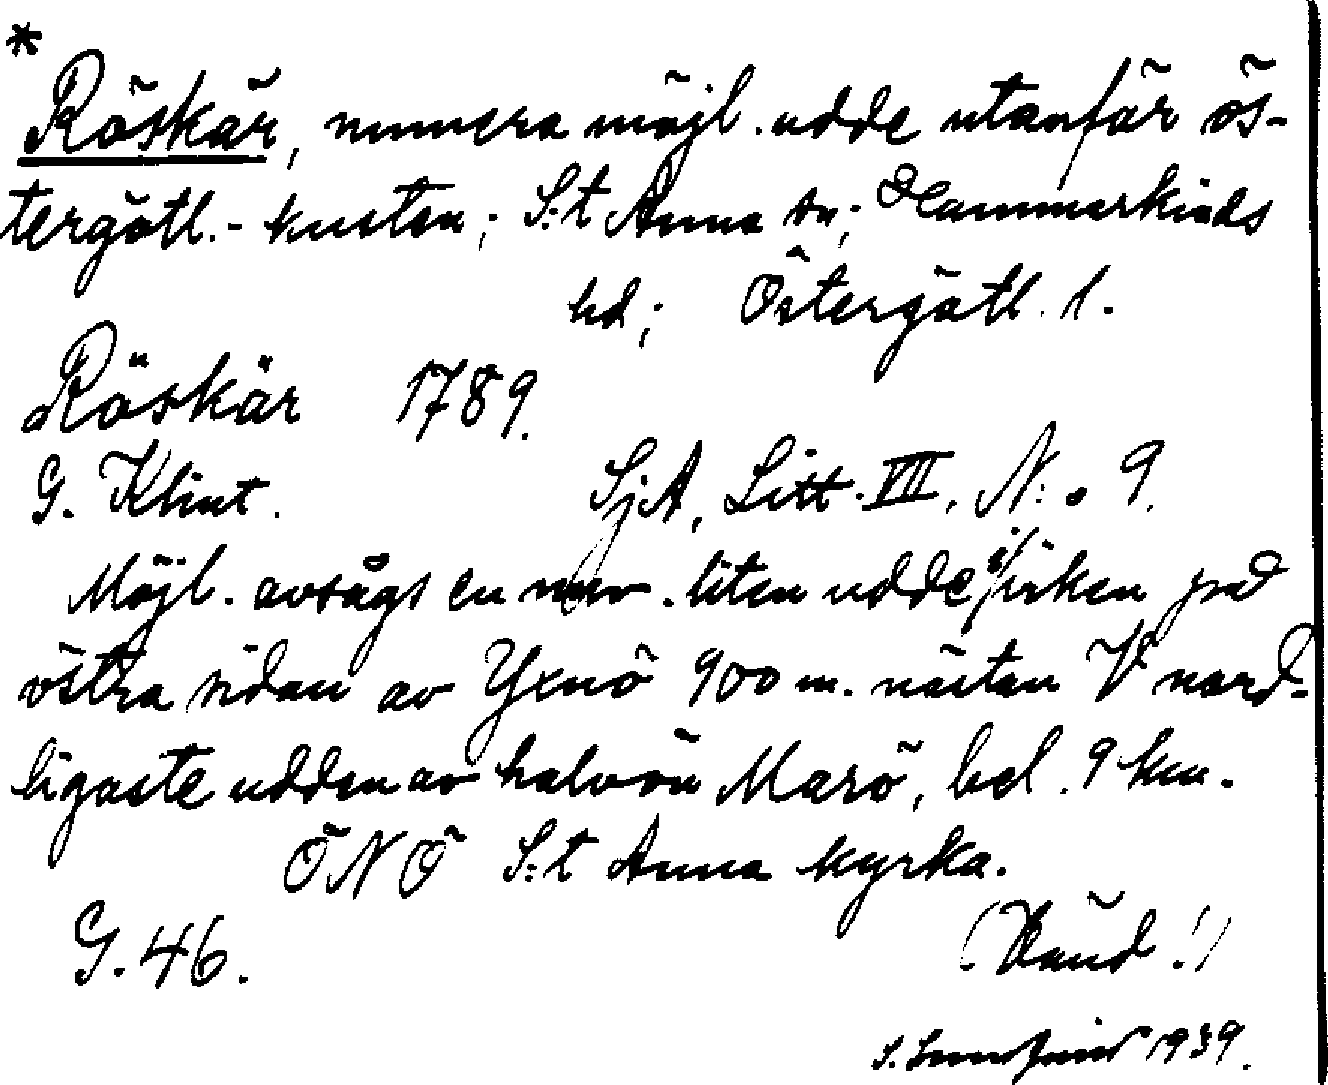 *
Röskär, numera möjl. udde utanför ös-
tergötl.- kusten; S:t Anna sn; Hammarkinds
hd; Östergötl. l.
Röskär 1789.
G. Klint. SjA, Litt. VIII, N:o 9.
Möjl. avsågs en nuv. liten udde i viken på
östra sidan av Yxnö 900 m. nästan V nord-
ligaste udden av halvön Marö, bel. 9 km.
ÖNÖ S:t Anna kyrka.
G. 46. (Vänd!)
1939.